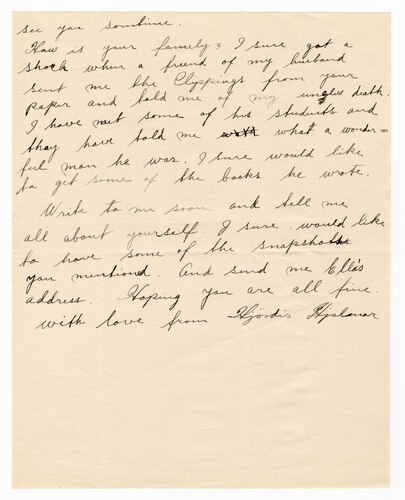 see you somtime.
How is your famely? I sure got a
shock when a friend of my husband
sent me the Clyppings from your
paper and told me of my uncles death.
I have met some of his students and
thay have told me what a wonder=
ful man he was. I sure would like
to get some of the books he wrote.
Write to me soon and tell me
all about yourself I sure would like
to have some of the snapshots
you mentiond. And send me Ella's
address. Hoping you are all fine
with love from Hjördis Hjalmar